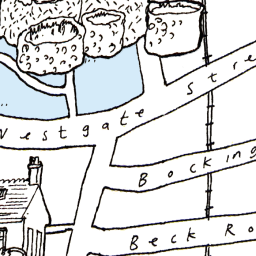 Westgate Stre
Bocking
Beck Ro